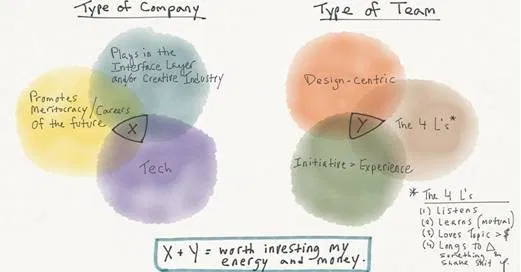 Type of Company
Plays in the
Interface Layer
and/or Creative Industry
Promotes
Meritocracy/Careers
of the future
X
Tech
Type of Team
Design-centric
The 4 L's*
Y
Initiative > Experience
* The 4 L's
(1) Listens
(2) Learns (mutual)
(3) Loves Topic > $
(4) Longs To △
something &
shake shit up
X + Y = worth investing my
energy and money.